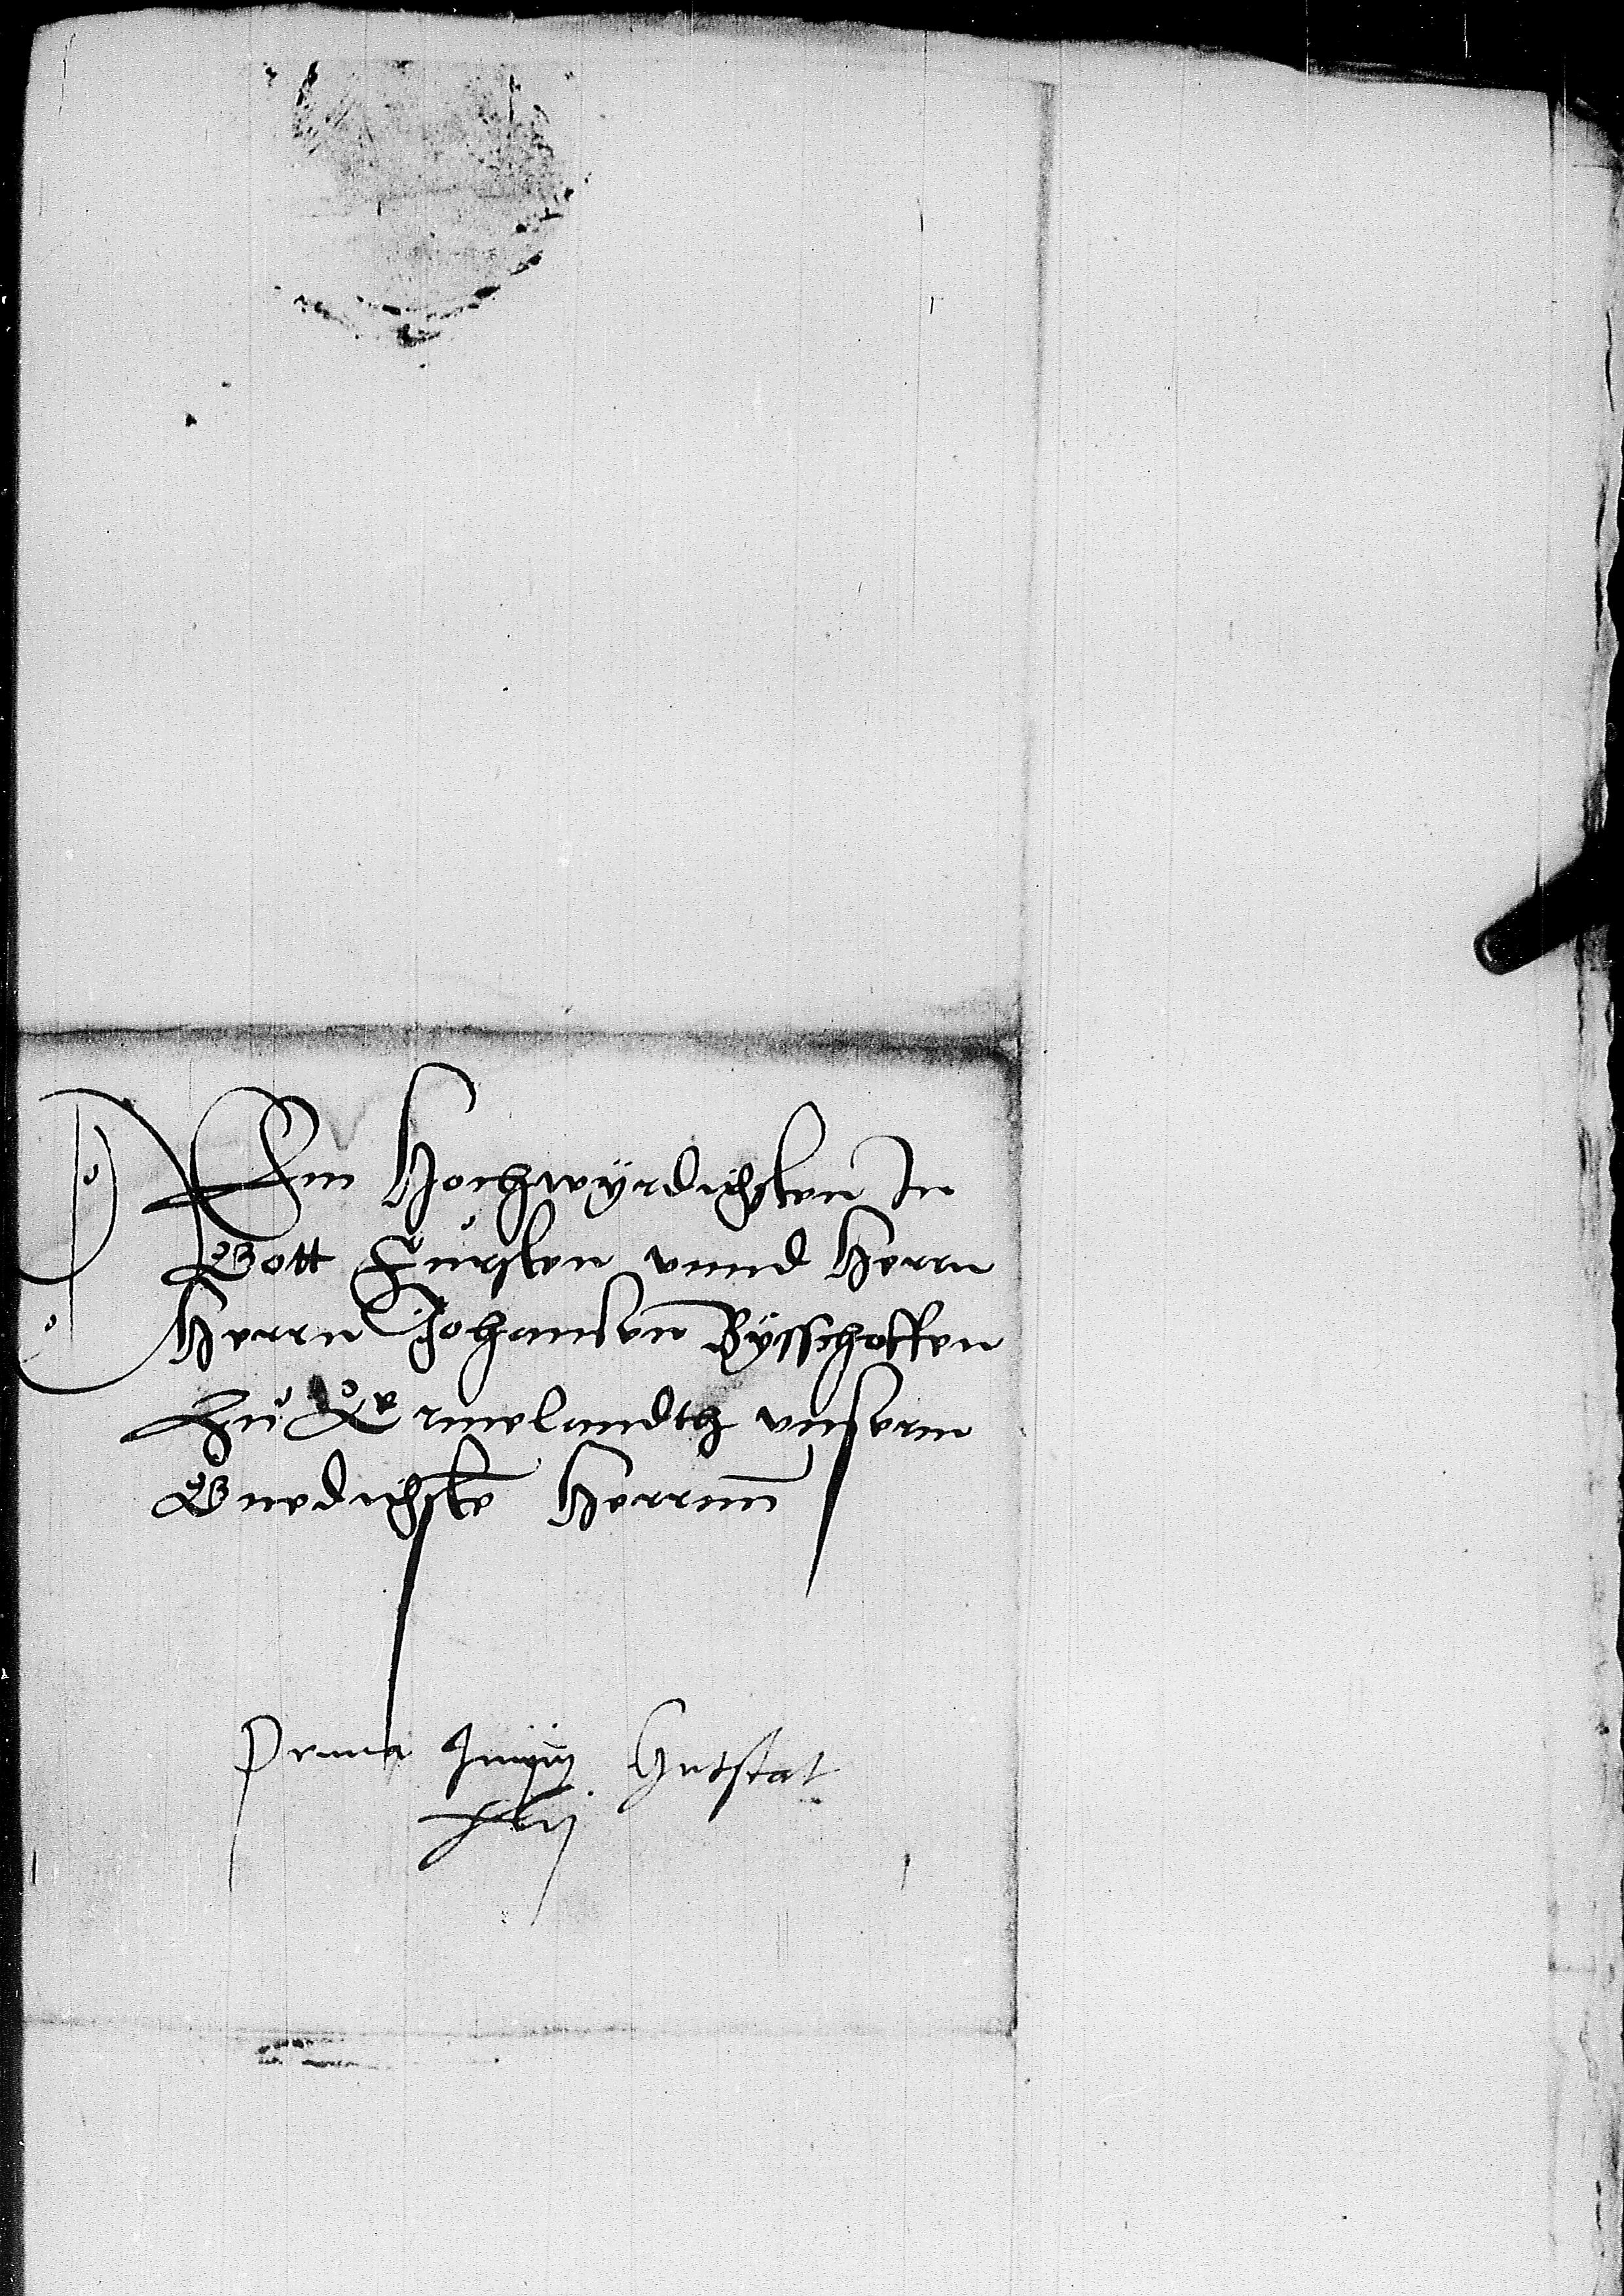 DEm Hochwÿrdichsten In
Gott Fursten vnnd Herrn
Herrn Johansen Bÿsschoffen
Zu Ermelandth vnserm
Gnedichste Herrnn
Prima Gutstat